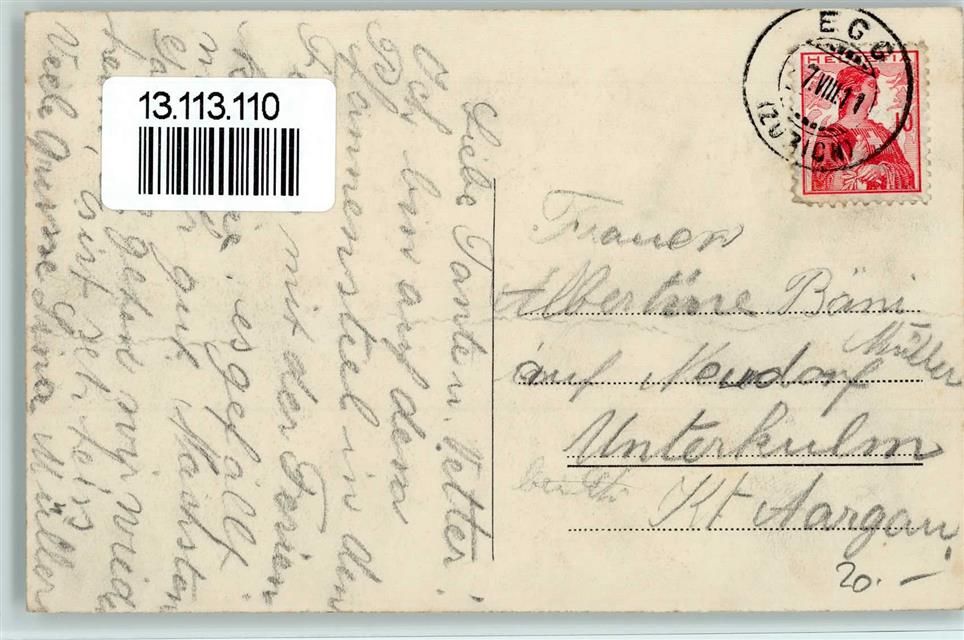 13.113.110
EGG
7.VIII.11
(ZÜRICH)
HELVETIA
Liebe Tante u. Vetter!
Ich bin auf dem
Pfannenstiel in den
mit der Ferien
es gefällt
gut. Nächsten
gehen wir wieder
Viele Grüsse Anna Müller
Frauen
Albertine Bäni
Müller
auf Neudorf
Unterkulm
Kt Aargau
20.-